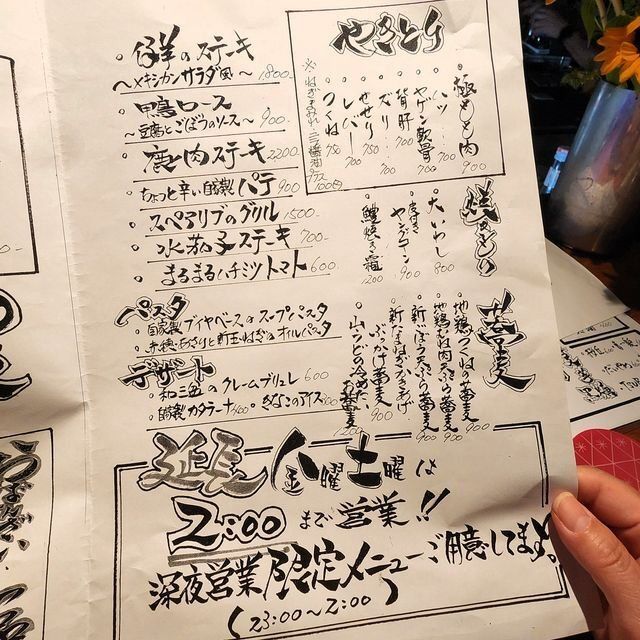 仔羊のステーキ
〜メキシカンサラダ風〜 1800-
鴨ロース
〜豆腐とごぼうのソース〜 900-
鹿もも肉ステーキ 2200-
ちょっと辛い自家製パテ 900
スペアリブのグリル 1500-
水茄子ステーキ 700-
まるまるハチミツトマト 600-
やきとり
極もも肉 900
ハツ 700
ヤゲン軟骨 700
背肝 700
ズリ 700
せせり 750
レバー 700
つくね 750
焼きもの
大いわし 800
皮付きヤングコーン 900
蕎麦
地鶏つくねの蕎麦 900
新ごぼう天ぷら蕎麦 900
新たまねぎかきあげ
ぶっかけ蕎麦 900
山うどの冷たいお蕎麦
パスタ
自家製ブイヤベースのスープパスタ
デザート
和三盆のクレームブリュレ 600
自家製カタラーナ 400 きなこのアイス 400
延長 金曜土曜は
2:00まで営業!!
深夜営業限定メニューご用意してます。
(23:00〜2:00)